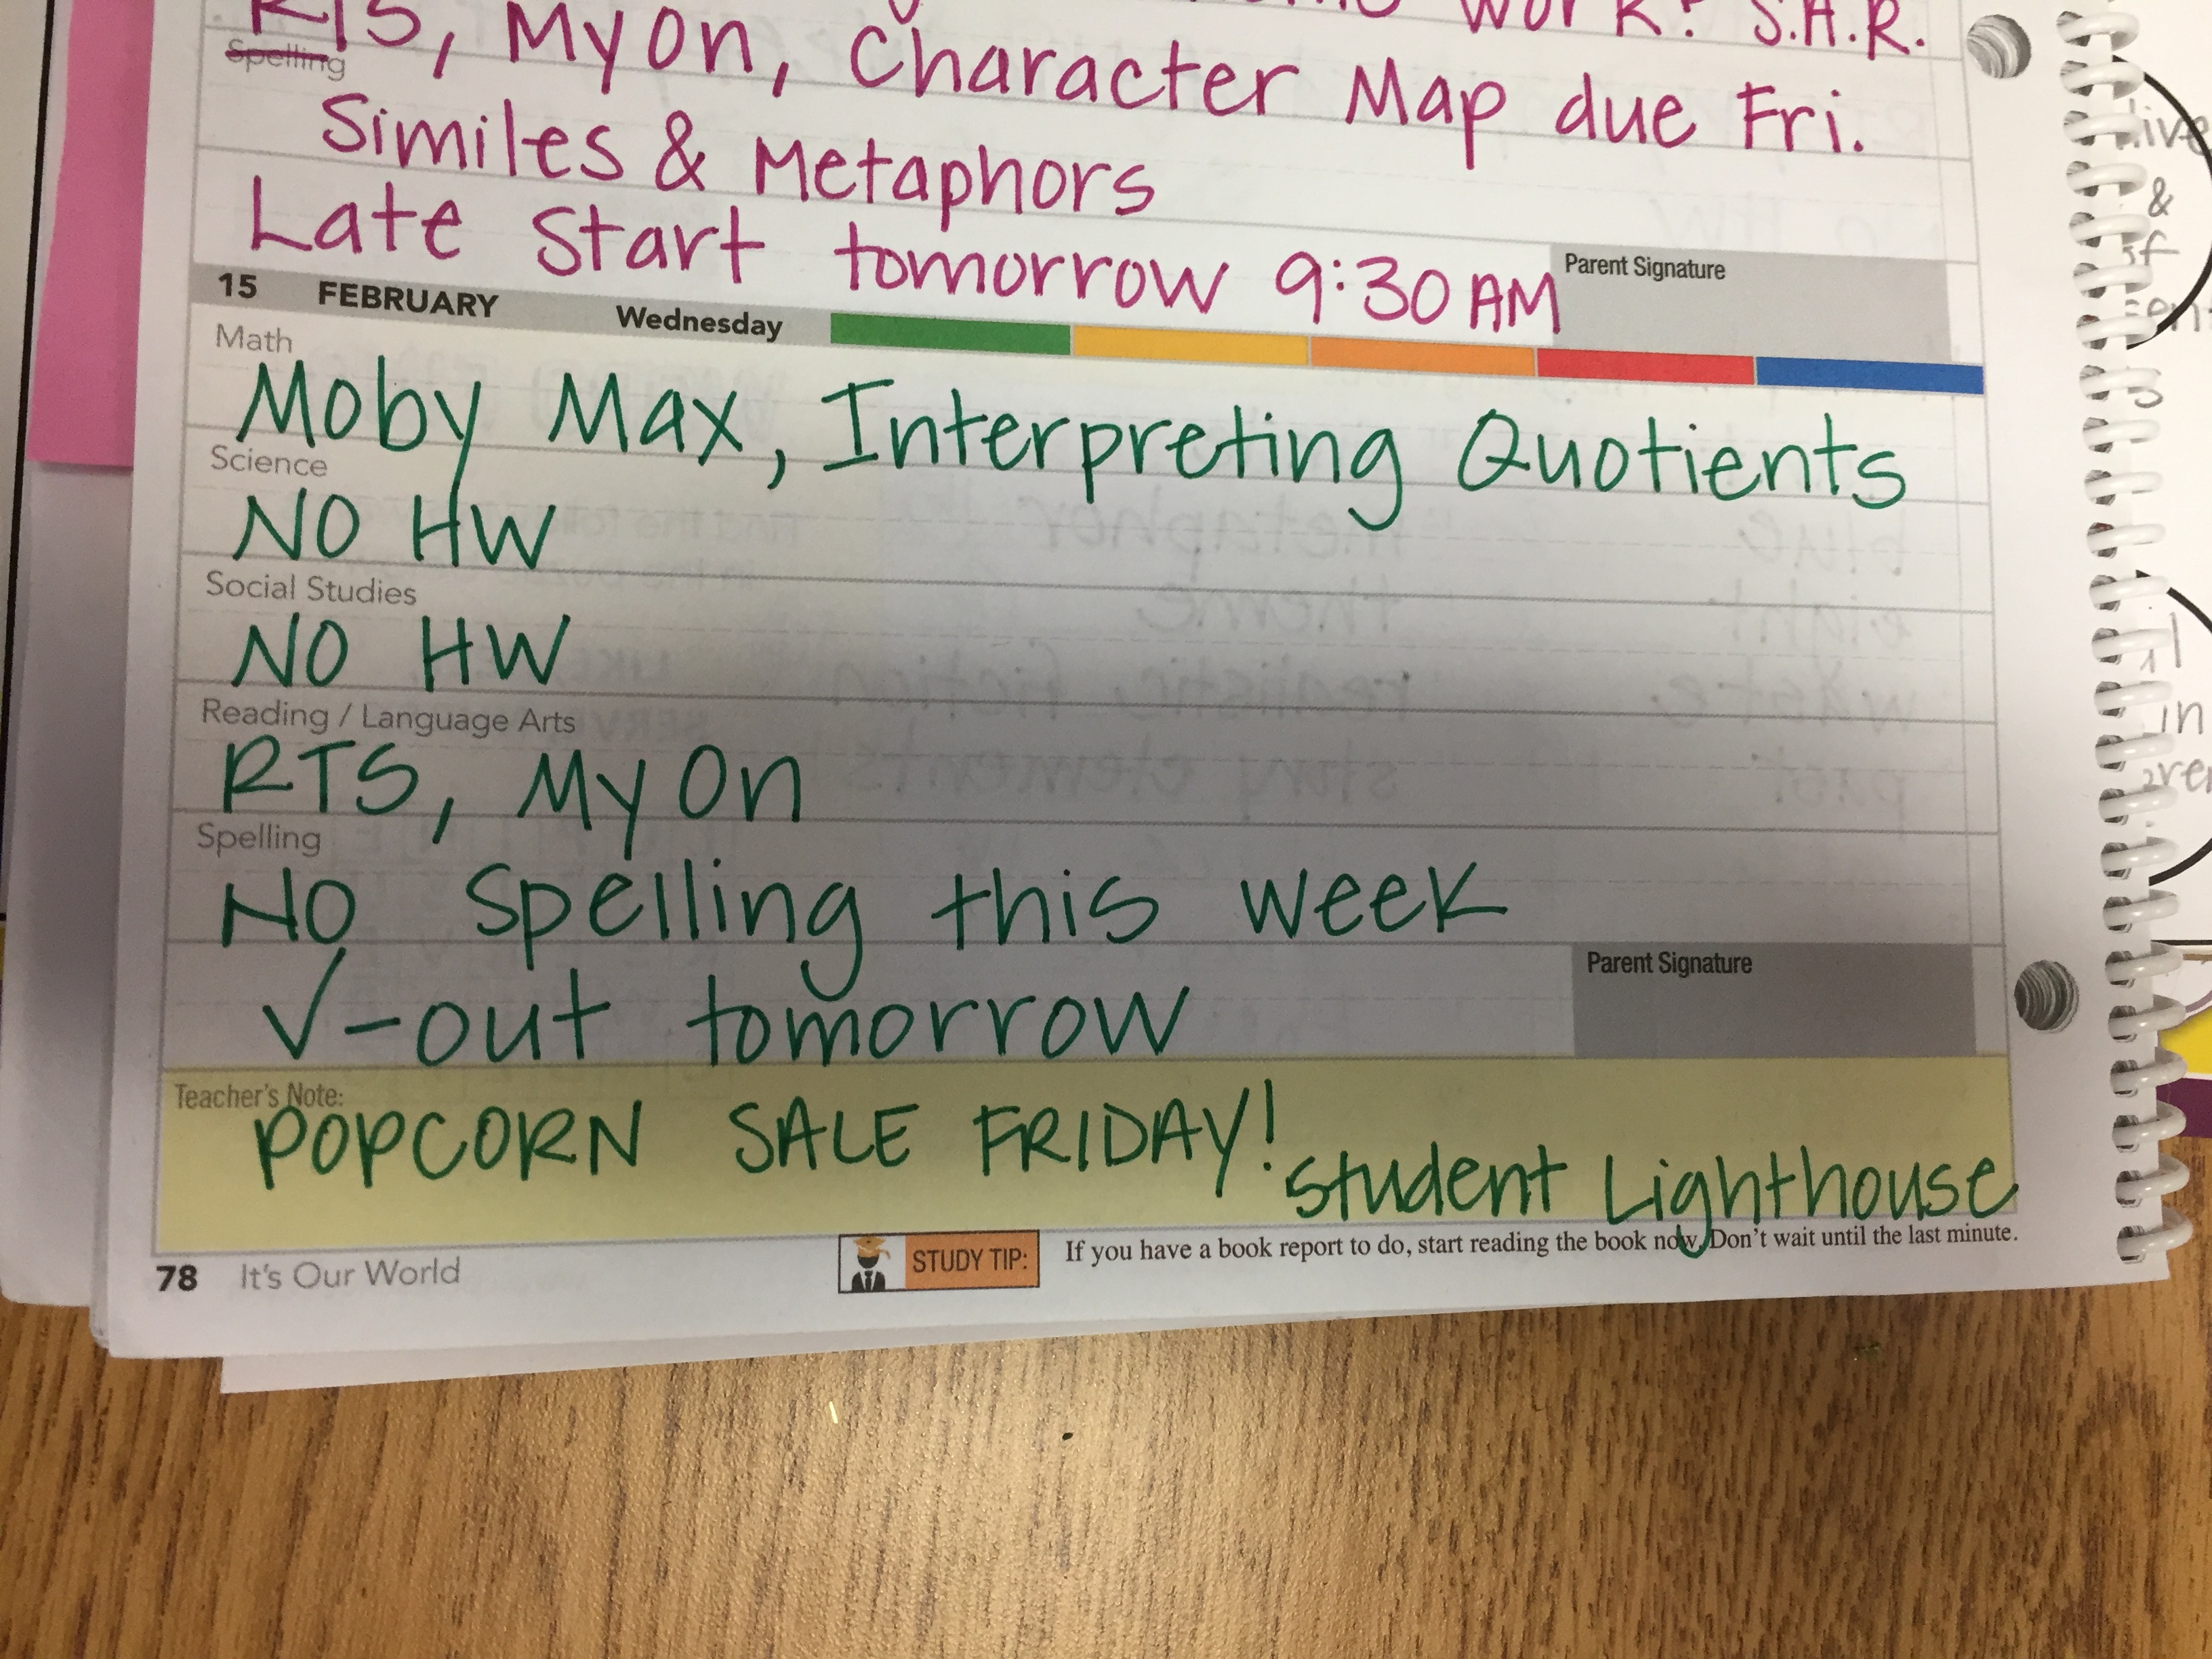 RTS, MyOn, Character Map due Fri.
work? S.H.R.
Spelling
Similes & Metaphors
Late Start tomorrow 9:30 AM
Parent Signature
15 FEBRUARY Wednesday
Math
Moby Max, Interpreting Quotients
Science
NO HW
Social Studies
NO HW
Reading / Language Arts
RTS, MyOn
Spelling
No Spelling this week
√-out tomorrow
Parent Signature
Teacher's Note:
POPCORN SALE FRIDAY!
Student Lighthouse
78 It's Our World
STUDY TIP: If you have a book report to do, start reading the book now. Don't wait until the last minute.
&